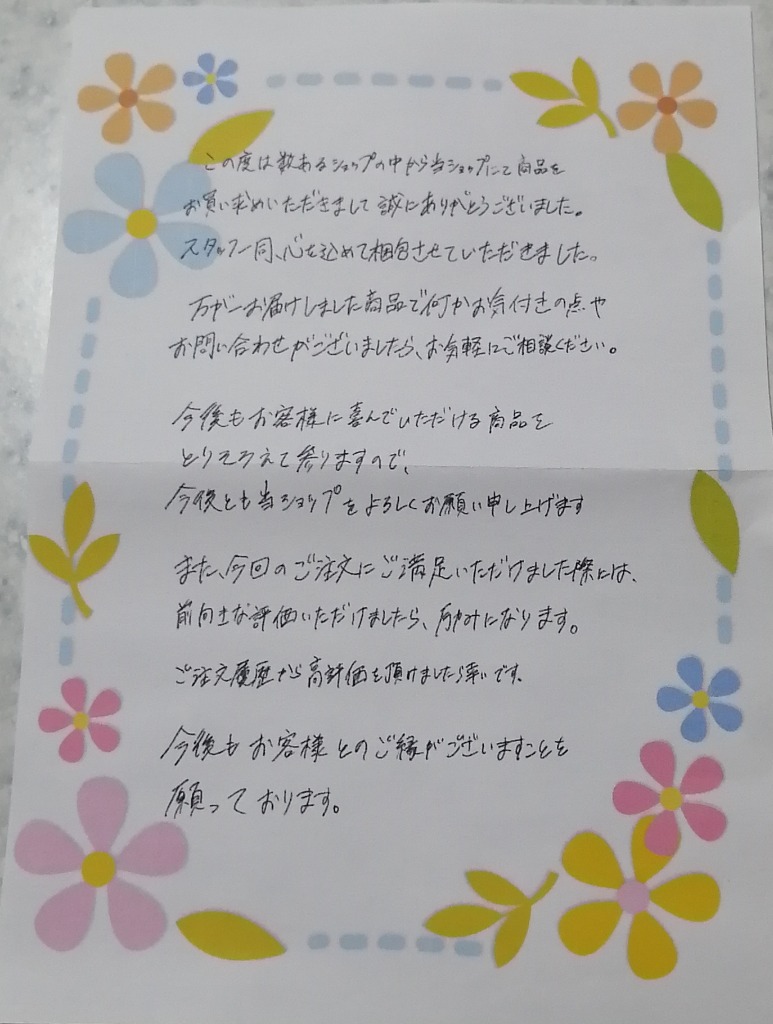 この度は数あるショップの中から当ショップにて商品を
お買い求めいただきまして誠にありがとうございました。
スタッフ一同、心を込めて梱包させていただきました。
万が一お届けしました商品で何かお気付きの点や
お問い合わせがございましたら、お気軽にご相談ください。
今後もお客様に喜んでいただける商品を
とりそろえて参りますので、
今後とも当ショップをよろしくお願い申し上げます
また、今回のご注文にご満足いただけました際には、
前向きな評価いただけましたら、励みになります。
ご注文履歴から高評価を頂けましたら幸いです。
今後もお客様とのご縁がございますことを
願っております。